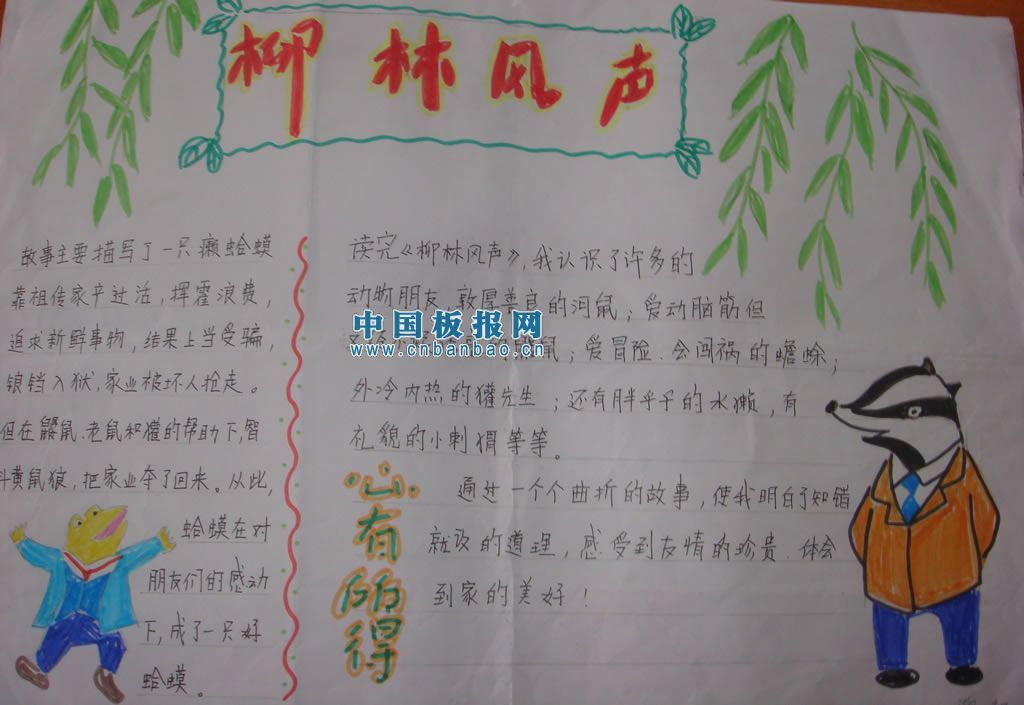 柳林风声
故事主要描写了一只癞蛤蟆
靠祖传家产过活，挥霍浪费，
追求新鲜事物，结果上当受骗，
锒铛入狱，家业被坏人抢走。
但在鼹鼠、老鼠和獾的帮助下，智
斗黄鼠狼，把家业夺了回来。从此，
蛤蟆在对
朋友们的感动
下，成了一只好
蛤蟆。
读完《柳林风声》，我认识了许多的
动物朋友，敦厚善良的河鼠；爱动脑筋但
鼠；爱冒险、会闯祸的蟾蜍；
外冷内热的獾先生；还有胖乎乎的水獭，有
礼貌的小刺猬等等。
心有所得
通过一个个曲折的故事，使我明白了知错
就改的道理，感受到友情的珍贵、体会
到家的美好！
中国板报网
www.cnbanbao.cn